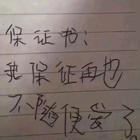 保证书:
我保证再也
不随便爱了